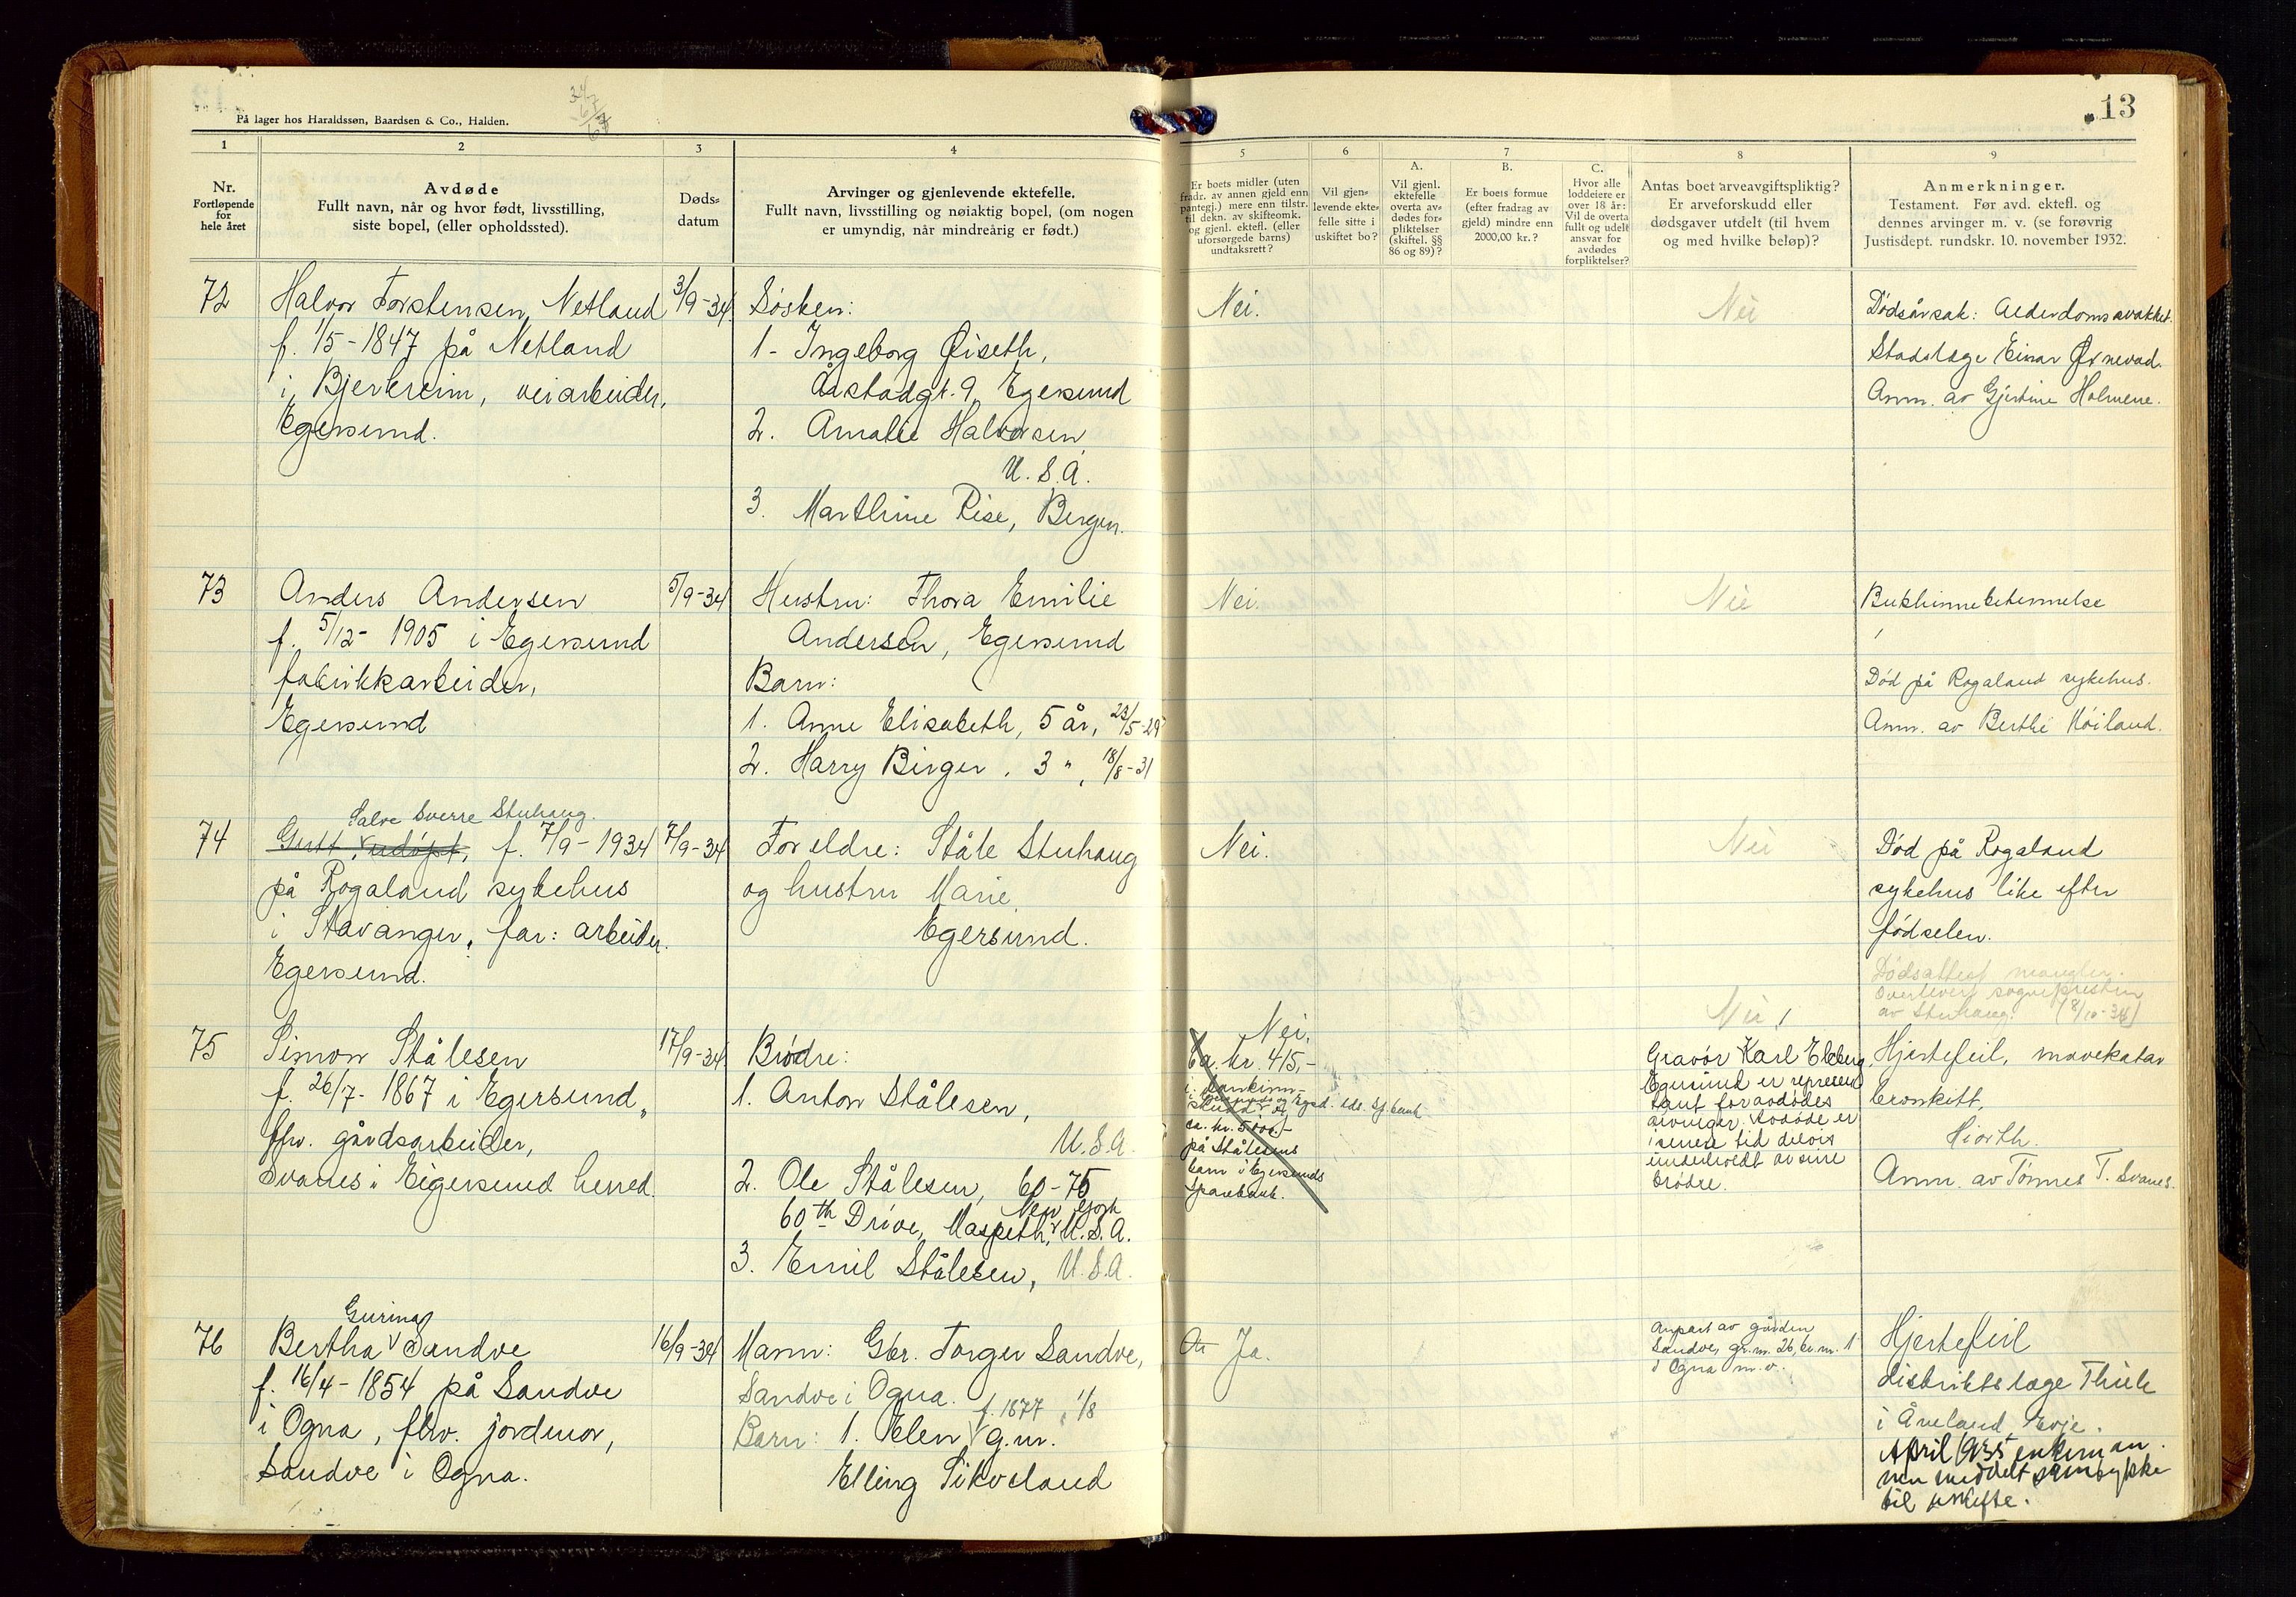 13
På lager hos Haraldssøn, Baardsen & Co., Halden.
34/67/67
1
Nr.
Fortløpende
for
hele året
2
Avdøde
Fullt navn, når og hvor født, livsstilling,
siste bopel, (eller opholdssted).
3
Døds-
datum
4
Arvinger og gjenlevende ektefelle.
Fullt navn, livsstilling og nøiaktig bopel, (om nogen
er umyndig, når mindreårig er født.)
5
Er boets midler (uten
fradr. av annen gjeld enn
pantegj.) mere enn tilstr.
til dekn. av skifteomk.
og gjenl. ektefl. (eller
uforsørgede barns)
undtaksrett?
6
Vil gjen-
levende ekte-
felle sitte i
uskiftet bo?
7
A.
Vil gjenl.
ektefelle
overta av-
dødes for-
pliktelser
(skiftel. §§
86 og 89)?
B.
Er boets formue
(efter fradrag av
gjeld) mindre enn
2000,00 kr.?
C.
Hvor alle
loddeiere er
over 18 år:
Vil de overta
fullt og udelt
ansvar for
avdødes
forpliktelser?
8
Antas boet arveavgiftspliktig?
Er arveforskudd eller
dødsgaver utdelt (til hvem
og med hvilke beløp)?
9
Anmerkninger.
Testament. Før avd. ektefl. og
dennes arvinger m. v. (se forøvrig
Justisdept. rundskr. 10. november 1932.
72
Halvor Torstensen Netland
f. 1/5 - 1847 på Netland
i Bjerkreim, veiarbeider,
Egersund.
3/9-34
Søsken:
1 - Ingeborg Øiseth,
Årstadgt. 9, Egersund
2. Amalie Halvorsen,
U.S.A.
3. Marthine Rise, Bergen.
Nei.
Nei
Dødsårsak: Alderdomssvakhet.
Stadslæge Einar Ørnevad.
Anm. av Gjertine Holmene.
73
Anders Andersen
f. 5/12 - 1905 i Egersund
fabrikkarbeider,
Egersund
5/9-34
Hustru: Thora Emilie
Andersen, Egersund
Barn:
1. Anne Elisabeth, 5 år, 23/5-29
2. Harry Birger, 3 ", 18/8-31
Nei.
Nei
Bukhinnebetennelse
Død på Rogaland sykehus.
Anm. av Berthe Høiland.
74
Salve Sverre Stuhaug.
Gutt, udøpt, f. 7/9 - 1934
på Rogaland sykehus
i Stavanger, far: arbeider.
Egersund.
7/9-34
Foreldre: Ståle Stuhaug
og hustru Marie,
Egersund.
Nei.
Nei
Død på Rogaland
sykehus like efter
fødselen.
Dødsattest mangler.
Overlevert sognepresten
av Stuhaug. (8/10-34)
75
Simon Stålesen
f. 26/7 - 1867 i Egersund,
fhv. gårdsarbeider,
Svanes i Eigersund herred.
17/9-34
Brødre:
1. Anton Stålesen,
U.S.A.
2. Ole Stålesen, 60-75
60th Drive, Maspeth, New York U.S.A.
3. Emil Stålesen, U.S.A.
Nei.
Ca. kr. 415,-
i bankinn-
skudd
ca. kr. 5000.-
på Stålesens
barn i Egersunds
Sparebank.
Nei!
Gravør Karl Eleberg
Egersund er represen
tant for avdødes
arvinger. Avdøde er
i senere tid delvis
underholdt av sine
brødre.
Hjertefeil, mavekatar
bronkitt,
Hiorth.
Anm. av Tønnes T. Svanes.
76
Gurina
Bertha Sandve
f. 16/4 - 1854 på Sandve
i Ogna, fhv. jordmor,
Sandve i Ogna.
16/9-34
Mann: Gbr. Torger Sandve,
Sandve i Ogna.
f. 1877, 1/8
Barn: 1. Elen g.m.
Elling Sikvoland
Ja.
Anpart av gården
Sandve, gr.nr. 26, br.nr. 1
i Ogna m.v.
Hjertefeil
distriktslæge Thiele
i Åneland, Evje.
April 1935 enkeman
nen meddelt samtykke
til uskifte.